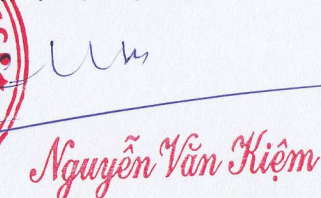 Nguyễn Văn Kiệm